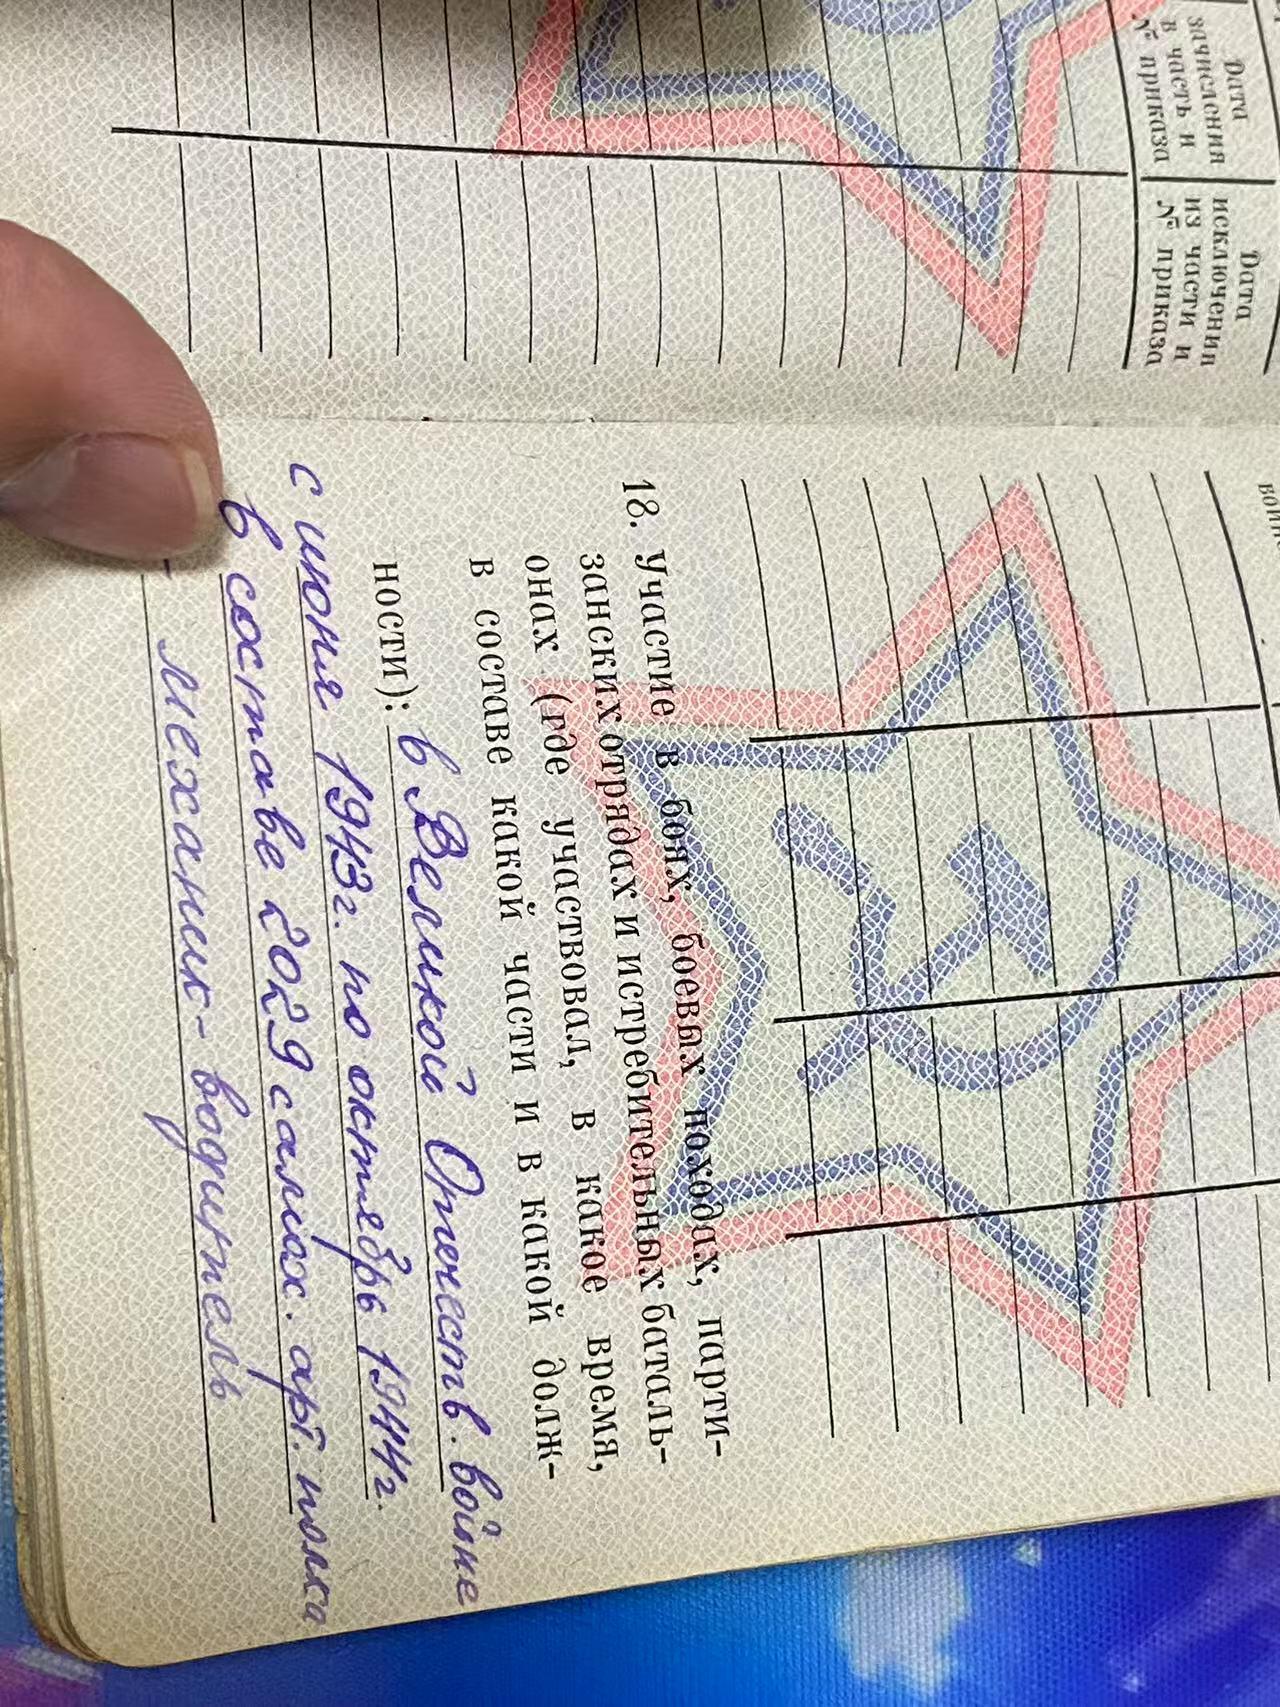 Дата
зачисления
в часть и
№ приказа
Дата
исключении
из части и
№ приказа
18. Участие в боях, боевых походах, парти-
занских отрядах и истребительных баталь-
онах (где участвовал, в какое время,
в составе какой части и в какой долж-
ности): в Великой Отечеств. войне
с июня 1943г. по октябрь 1944г.
в составе 2029 самох. арт. полка
- механик-водитель